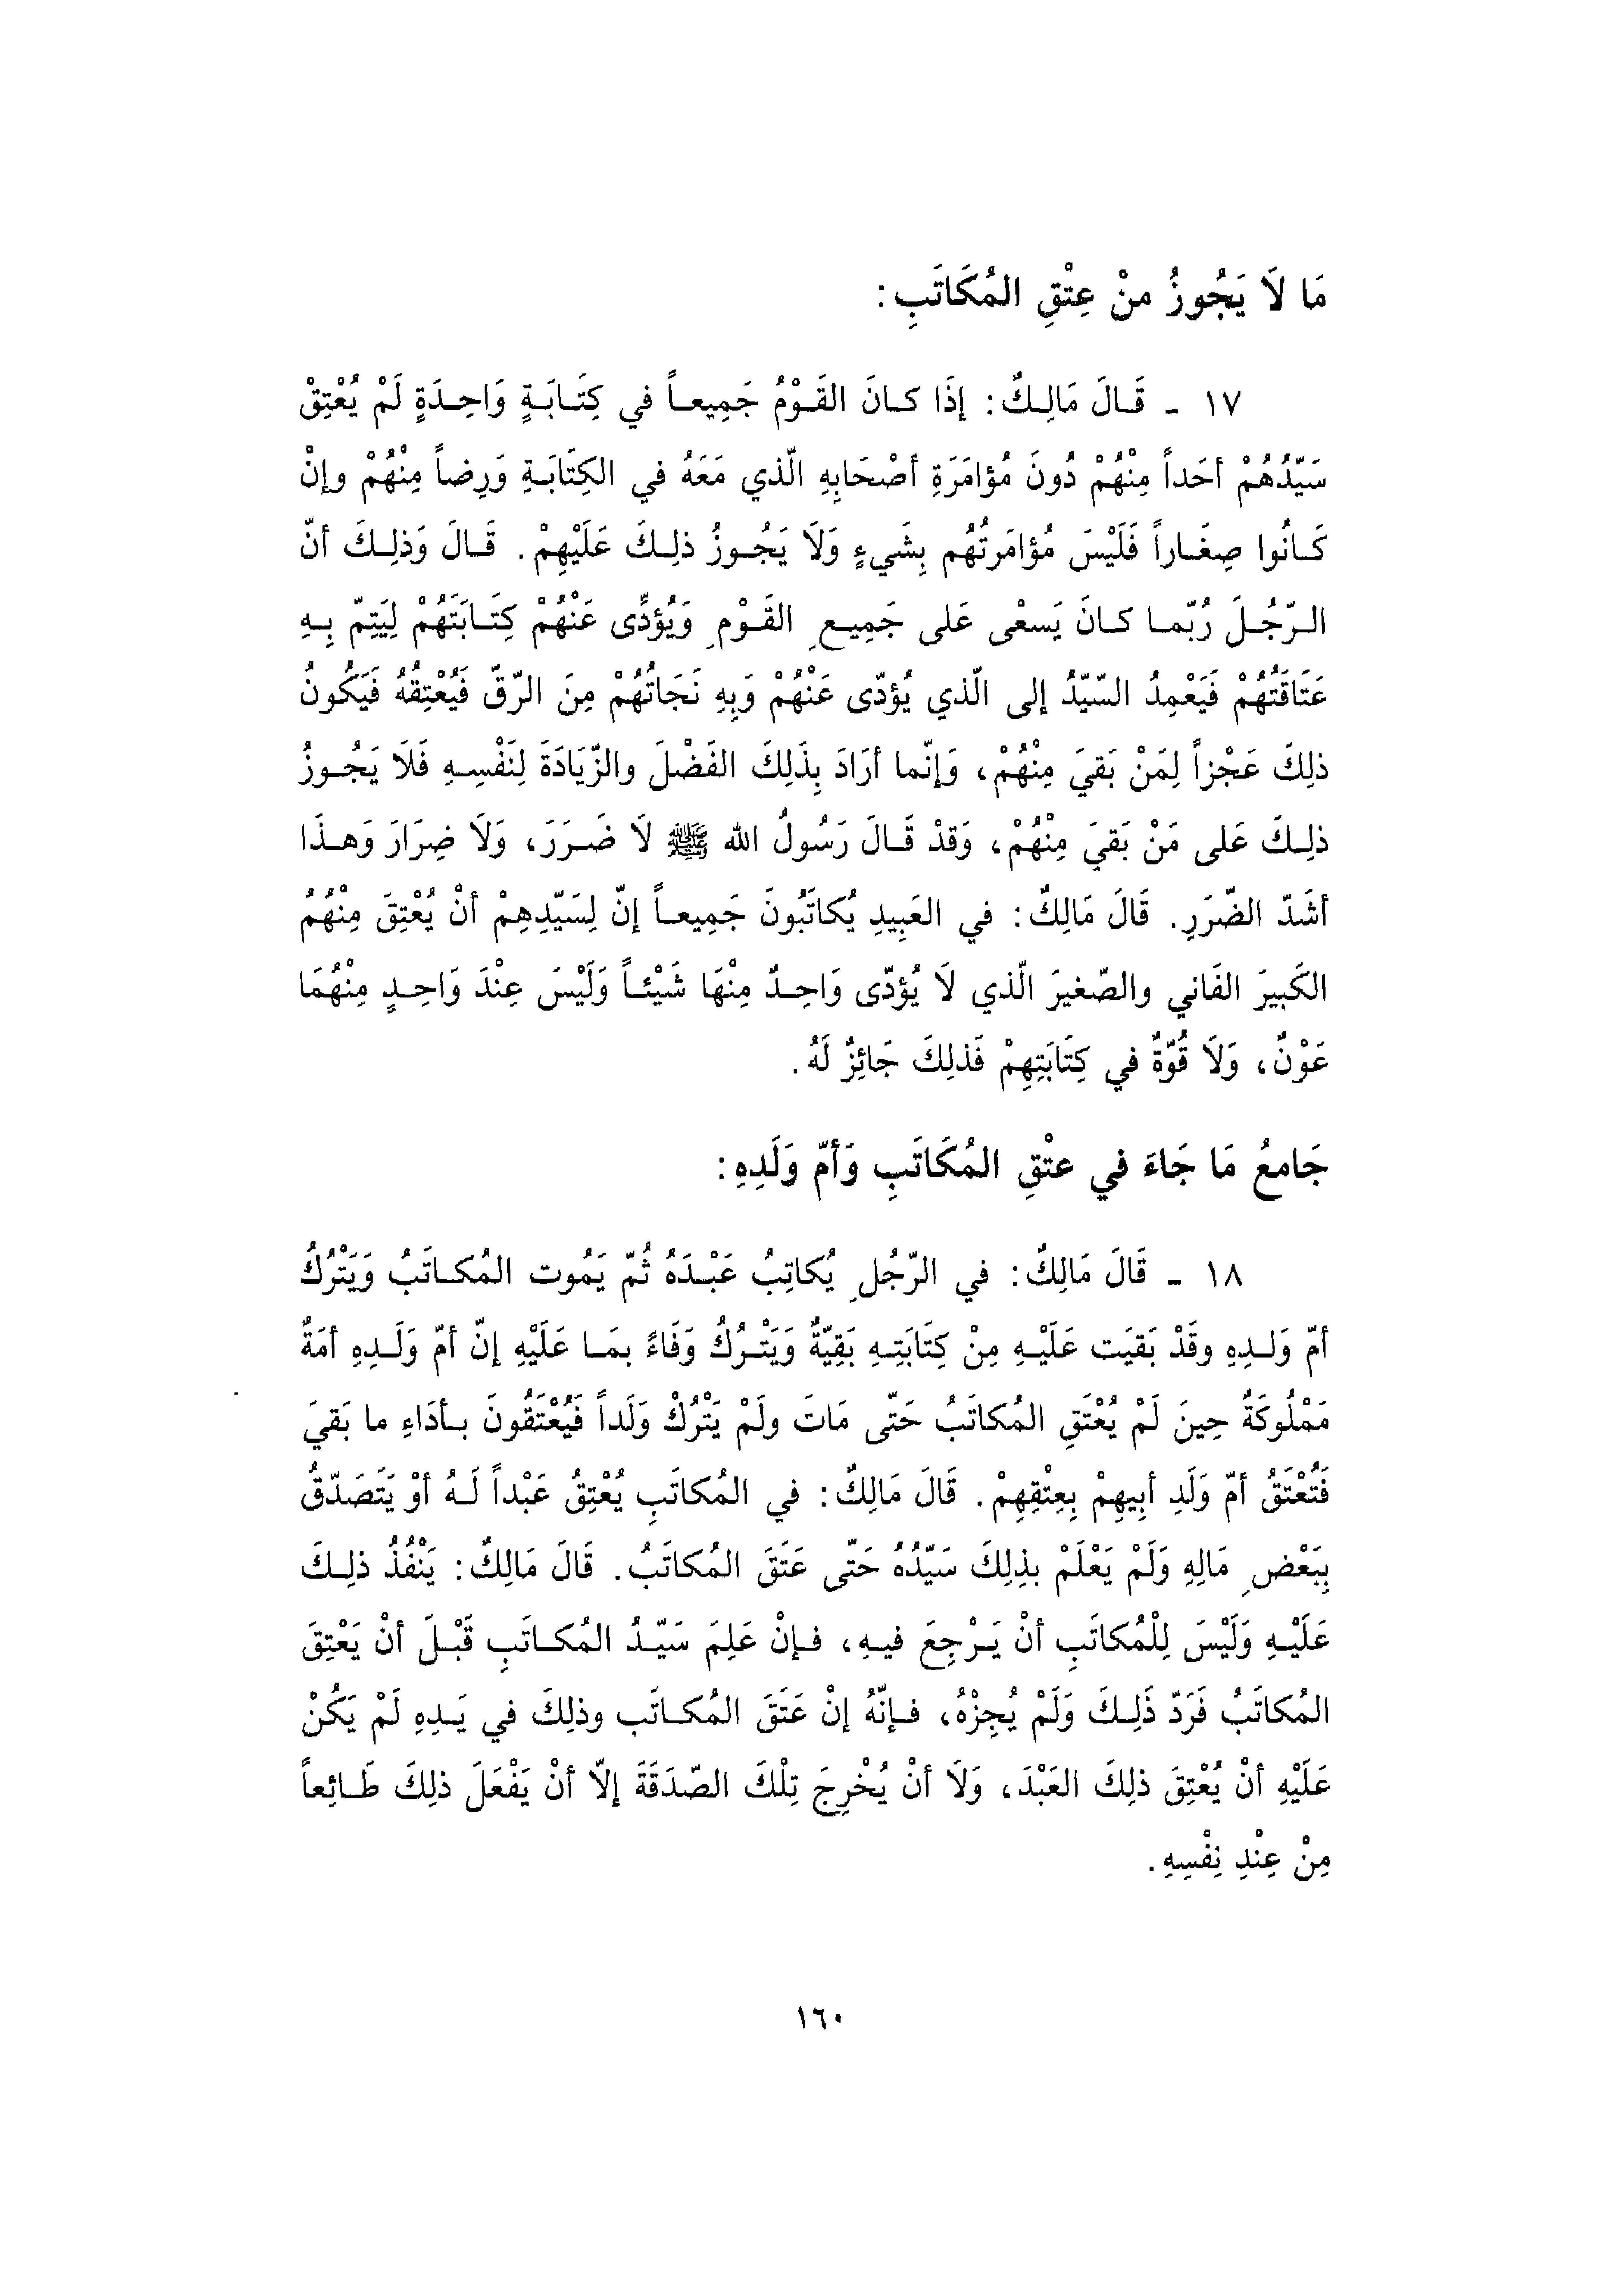 مَا لَا يَجُوزُ منْ عِتْقِ المُكَاتَبِ:
١٧ - قَالَ مَالِكٌ: إذَا كانَ القَوْمُ جَمِيعاً في كِتَابَةٍ وَاحِدَةٍ لَمْ يُعْتِقْ
سَيّدُهُمْ أحَداً مِنْهُمْ دُونَ مُؤامَرَةِ أصْحَابِهِ الّذي مَعَهُ في الكِتَابَةِ وَرِضاً مِنْهُمْ وإنْ
كَانُوا صِغَاراً فَلَيْسَ مُؤامَرتُهُم بِشَيءٍ وَلَا يَجُوزُ ذلِكَ عَلَيْهِمْ. قَالَ وَذلِكَ أنّ
الرّجُلَ رُبّما كانَ يَسعْى عَلى جَمِيعِ القَوْمِ وَيُؤدِّى عَنْهُمْ كِتَابَتَهُمْ لِيَتِمّ بِهِ
عَتَاقَتُهُمْ فَيَعْمِدُ السّيّدُ إلى الّذي يُؤدّى عَنْهُمْ وَبِهِ نَجَاتُهُمْ مِنَ الرّقّ فَيُعْتِقهُ فَيَكُونُ
ذلِكَ عَجْزاً لِمَنْ بَقيَ مِنْهُمْ، وَإنّما أرَادَ بِذَلِكَ الفَضْلَ والزّيَادَةَ لِنَفْسِهِ فَلَا يَجُوزُ
ذلِكَ عَلى مَنْ بَقيَ مِنْهُمْ، وَقدْ قَالَ رَسُولُ الله ﷺ لَا ضَرَرَ، وَلَا ضِرَارَ وَهذَا
أشَدّ الضّرَرِ. قَالَ مَالِكٌ: في العَبِيدِ يُكاتَبُونَ جَمِيعاً إنّ لِسَيّدِهِمْ أنْ يُعْتِقَ مِنْهُمُ
الكَبيرَ الفَاني والصّغيرَ الّذي لَا يُؤدّى وَاحِدٌ مِنْهَا شَيْئاً وَلَيْسَ عِنْدَ وَاحِدٍ مِنْهُمَا
عَوْنٌ، وَلَا قُوّةٌ في كِتَابَتِهِمْ فَذلِكَ جَائِزٌ لَهُ.
جَامعُ مَا جَاءَ في عتْقِ المُكَاتَبِ وَأمّ وَلَدِهِ:
١٨ - قَالَ مَالِكٌ: في الرّجُلِ يُكاتِبُ عَبْدَهُ ثُمّ يَمُوت المُكاتَبُ وَيَتْرُكُ
أمّ وَلدِهِ وقَدْ بَقيَت عَلَيْهِ مِنْ كِتَابَتِهِ بَقِيّةٌ وَيَتْرُكُ وَفَاءً بمَا عَلَيْهِ إنّ أمّ وَلَدِهِ أمَةٌ
مَمْلُوكَةٌ حِينَ لَمْ يُعْتَقِ المُكاتَبُ حَتّى مَاتَ ولَمْ يَتْرُكْ وَلَداً فَيُعْتَقُونَ بأدَاءِ ما بَقيَ
فَتُعْتَقُ أمّ وَلَدِ أبِيهِمْ بِعِتْقِهِمْ. قَالَ مَالِكٌ: في المُكاتَبِ يُعْتِقُ عَبْداً لَهُ أوْ يَتَصَدّقُ
بِبَعْضِ مَالِهِ وَلَمْ يَعْلَمْ بذِلِكَ سَيّدُهُ حَتّى عَتَقَ المُكاتَبُ. قَالَ مَالِكٌ: يَنْفُذُ ذلِكَ
عَلَيْهِ وَلَيْسَ لِلْمُكاتَبِ أنْ يَرْجِعَ فيهِ، فإنْ عَلِمَ سَيّدُ المُكاتَبِ قَبْلَ أنْ يَعْتِقَ
المُكاتَبُ فَرَدّ ذَلِكَ وَلَمْ يُجِزْهُ، فإنّهُ إنْ عَتَقَ المُكاتَب وذلِكَ في يَدِهِ لَمْ يَكُنْ
عَلَيْهِ أنْ يُعْتِقَ ذلِكَ العَبْدَ، وَلَا أنْ يُخْرِجَ تِلْكَ الصّدَقَةَ إلّا أنْ يَفْعَلَ ذلِكَ طَائِعاً
مِنْ عِنْدِ نِفْسِهِ.
١٦٠